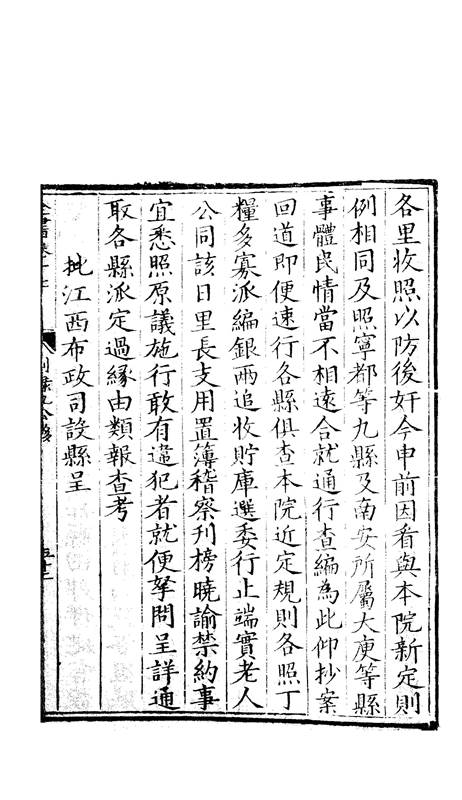 各里收照以防後奸今申前因看與本院新定則
例相同及照寧都等九縣及南安所屬大庾等縣
事體民情當不相遠合就通行查編為此仰抄案
回道即便速行各縣俱查本院近定規則各照丁
糧多寡派編銀兩追收貯庫選委行止端實老人
公同該日里長支用置簿稽察刊榜曉諭禁約事
宜悉照原議施行敢有違犯者就便拏問呈詳通
取各縣派定過緣由類報查考
批江西布政司設縣呈